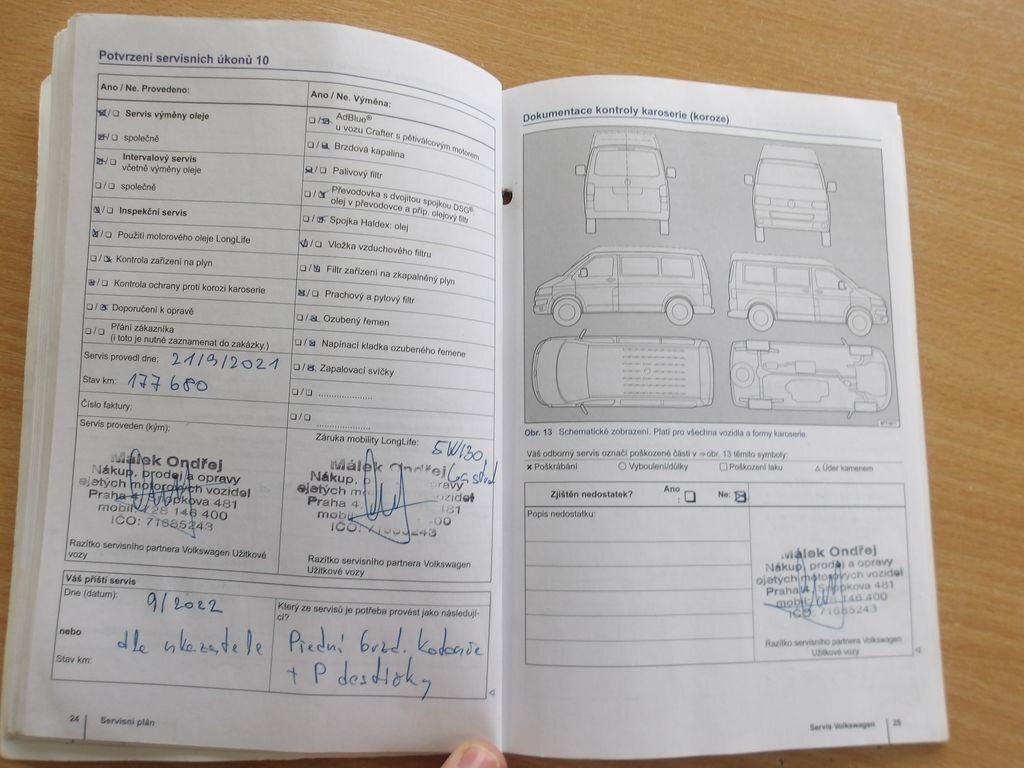 Potvrzení servisních úkonů 10
Ano / Ne. Provedeno:
❑/❑ Servis výměny oleje
❑/❑ společně
❑/❑ Intervalový servis
včetně výměny oleje
❑/❑ společně
❑/❑ Inspekční servis
❑/❑ Použití motorového oleje LongLife
❑/❑ Kontrola zařízení na plyn
❑/❑ Kontrola ochrany proti korozi karoserie
❑/❑ Doporučení k opravě
❑/❑ Přání zákazníka
(i toto je nutné zaznamenat do zakázky.)
Servis provedl dne: 21/9/2021
Stav km: 177 680
Číslo faktury:
Servis proveden (kým):
Málek Ondřej
Nákup, prodej a opravy
ojetých motorových vozidel
Praha 4, 481
mobil: 728 146 400
IČO: 71685243
Razítko servisního partnera Volkswagen Užitkové
vozy
Ano / Ne. Výměna:
❑/❑ AdBlue®
u vozu Crafter s pětiválcovým motorem
❑/❑ Brzdová kapalina
❑/❑ Palivový filtr
❑/❑ Převodovka s dvojitou spojkou DSG®
olej v převodovce a příp. olejový filtr
❑/❑ Spojka Haldex: olej
❑/❑ Vložka vzduchového filtru
❑/❑ Filtr zařízení na zkapalněný plyn
❑/❑ Prachový a pylový filtr
❑/❑ Ozubený řemen
❑/❑ Napínací kladka ozubeného řemene
❑/❑ Zapalovací svíčky
❑/❑ ....................
❑/❑ ....................
Záruka mobility LongLife: 5W30
Castrol
Málek Ondřej
Nákup, opravy
ojetých vozidel
Praha 4, 481
IČO: 71685243
Razítko servisního partnera Volkswagen
Užitkové vozy
Váš příští servis
Dne (datum): 9/2022
nebo dle ukazatele
Stav km:
Který ze servisů je potřeba provést jako následují-
cí?
Přední brzd. kotouče
+ P destičky
24 Servisní plán
Dokumentace kontroly karoserie (koroze)
Obr. 13 Schematické zobrazení. Platí pro všechna vozidla a formy karoserie.
Váš odborný servis označí poškozené části v ⇒ obr. 13 těmito symboly:
✖ Poškrábání ○ Vyboulení/důlky ❑ Poškození laku △ Úder kamenem
Zjištěn nedostatek? Ano
: ❑ Ne: ❑
Popis nedostatku:
Málek Ondřej
Nákup, prodej a opravy
ojetých motorových vozidel
Praha 481
mobil: 146 400
IČO: 71685243
Razítko servisního partnera Volkswagen
Užitkové vozy
Servis Volkswagen 25